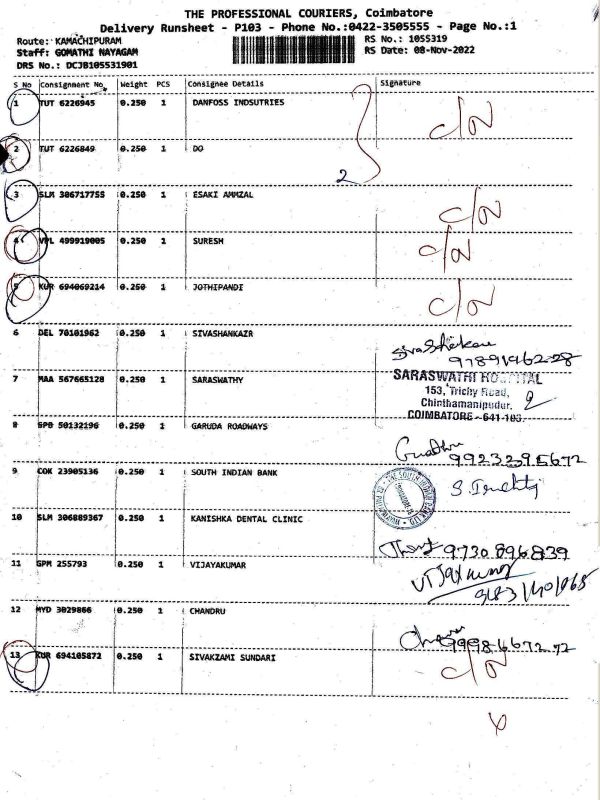 THE PROFESSIONAL COURIERS, Coimbatore
Delivery Runsheet - P103 - Phone No.:0422-3505555 - Page No.:1
Route: KAMACHIPURAM RS No.: 1055319
Staff: GOMATHI NAYAGAM RS Date: 08-Nov-2022
DRS No.: DCJB105531901
S No Consignment No. Weight PCS Consignee Details Signature
1 TUT 6226945 0.250 1 DANFOSS INDSUTRIES C/N
2 TUT 6226849 0.250 1 DO
2
3 SLM 306717755 0.250 1 ESAKI AMMZAL C/N
4 VPL 499919005 0.250 1 SURESH C/N
5 KUR 694069214 0.250 1 JOTHIPANDI C/N
6 DEL 70101962 0.250 1 SIVASHANKAZR
7 MAA 567665128 0.250 1 SARASWATHY SARASWATHI HOSPITAL
153, Trichy Road,
Chinthamanipudur,
COIMBATORE - 641 103.
8 SPB 50132196 0.250 1 GARUDA ROADWAYS
9923295672
9 COK 23905136 0.250 1 SOUTH INDIAN BANK
10 SLM 306889367 0.250 1 KANISHKA DENTAL CLINIC
9730896839
11 GPM 255793 0.250 1 VIJAYAKUMAR
12 MYD 3029866 0.250 1 CHANDRU
13 KUR 694105872 0.250 1 SIVAKZAMI SUNDARI C/N